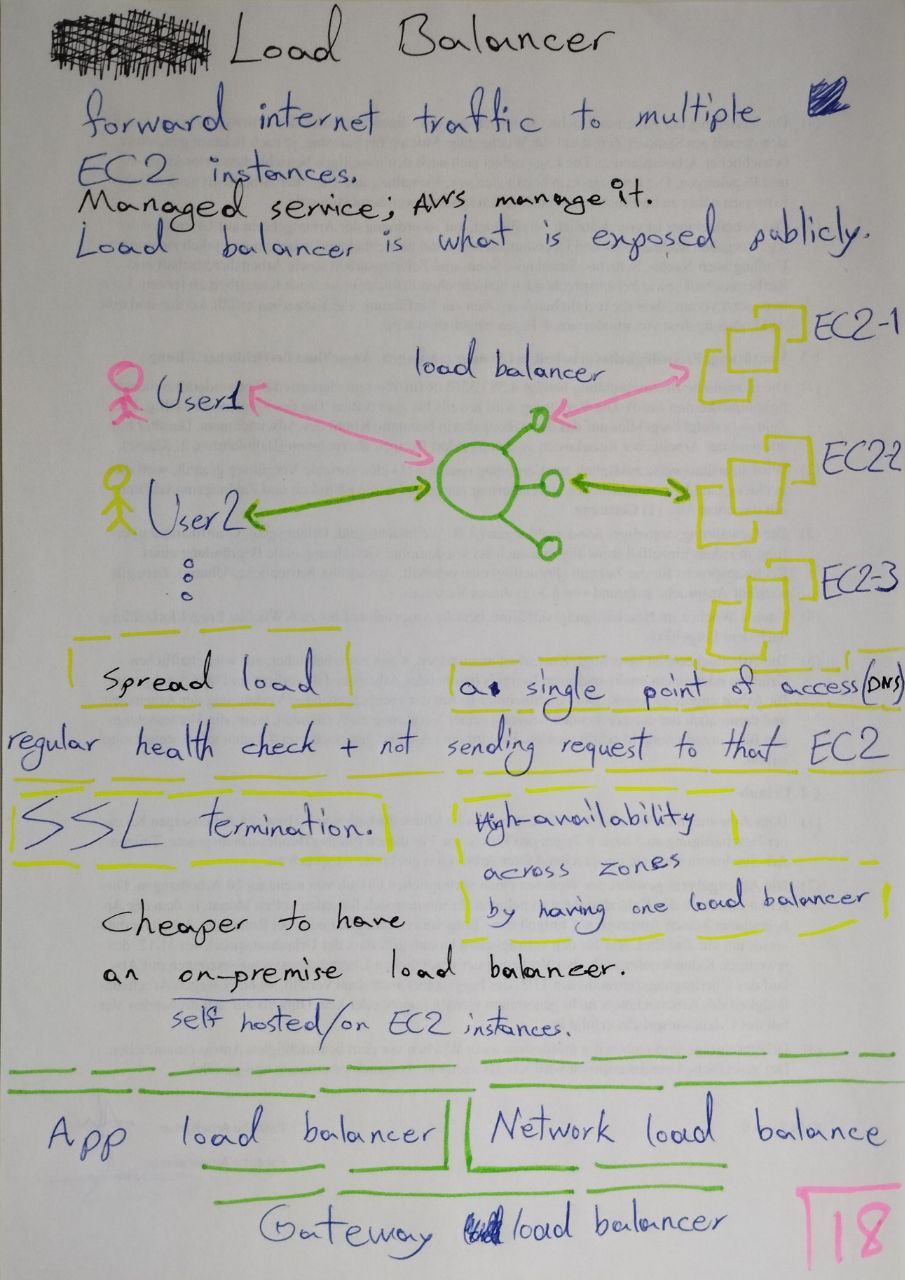 Load Balancer
forward internet traffic to multiple
EC2 instances.
Managed service; AWS manage it.
Load balancer is what is exposed publicly.
EC2-1
load balancer
User1
EC2-2
User2
EC2-3
spread load
a single point of access (DNS)
regular health check + not sending request to that EC2
SSL termination.
High-availability
across zones
by having one load balancer
Cheaper to have
an on-premise load balancer.
self hosted/on EC2 instances.
App load balancer
Network load balance
Gateway load balancer
18